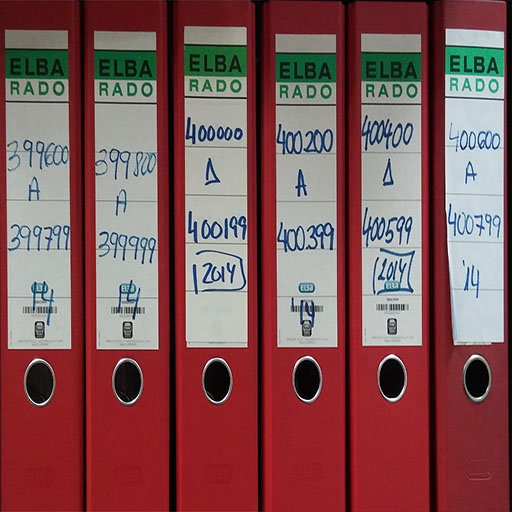 ELBA
RADO
399600
A
399799
14
ELBA
RADO
399800
A
399999
14
ELBA
RADO
400000
A
400199
2014
ELBA
RADO
400200
A
400399
ELBA
14
ELBA
RADO
400400
A
400599
2014
ELBA
RADO
400600
A
400799
'14